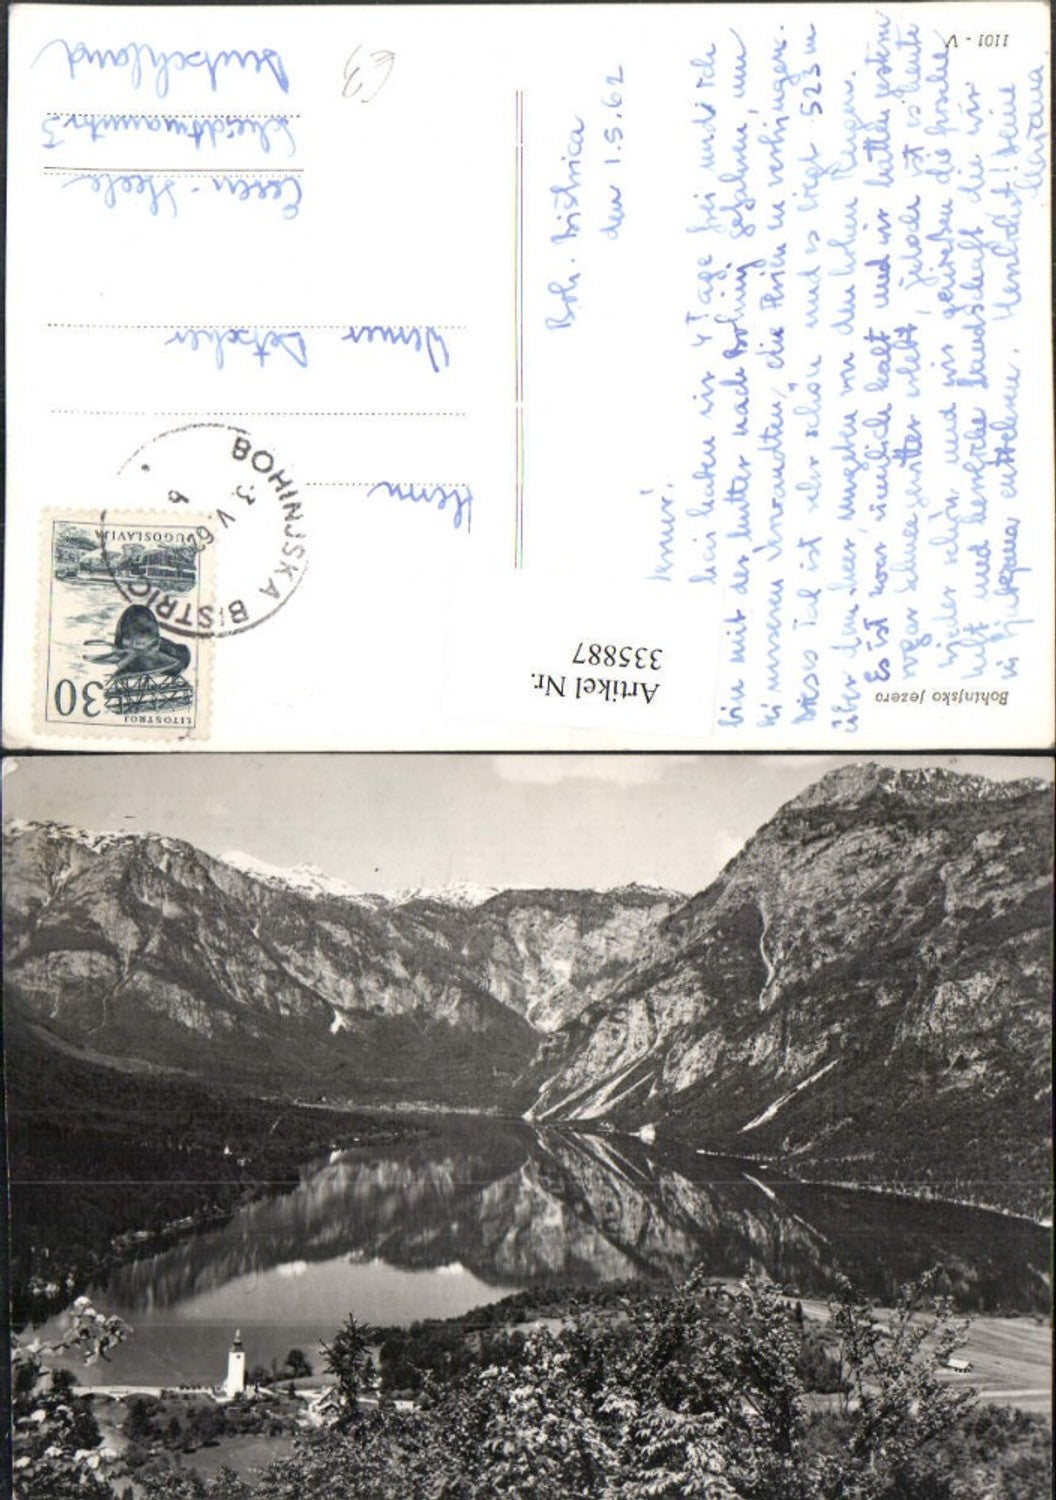 1101 - V
Bohinjsko jezero
Boh. Bistrica
den 1.5.62
Servus,
wir haben wir 4 Tage frei und ich
bin mit der Mutter nach Bohinj gefahren, um
bei unseren Verwandten, die Ferien zu verbringen.
Dieses Tal ist sehr schön und es liegt 523 m
über dem Meer, umgeben von den hohen Bergen.
Es ist zwar ziemlich kalt und wir hatten gestern
sogar Schneegewitter erlebt, jedoch ist es heute
wieder schön und wir genießen die frische
Luft und herrliche Landschaft die wir
in Ljubljana entbehren. Herzlichst! Deine
Herrn
Werner
Essen-Steele
Scheidtmanntr 5
Deutschland
LITOSTROJ
30
JUGOSLAVIJA
BOHINJSKA BISTRICA
3. V. 62
6
Artikel Nr.
335887